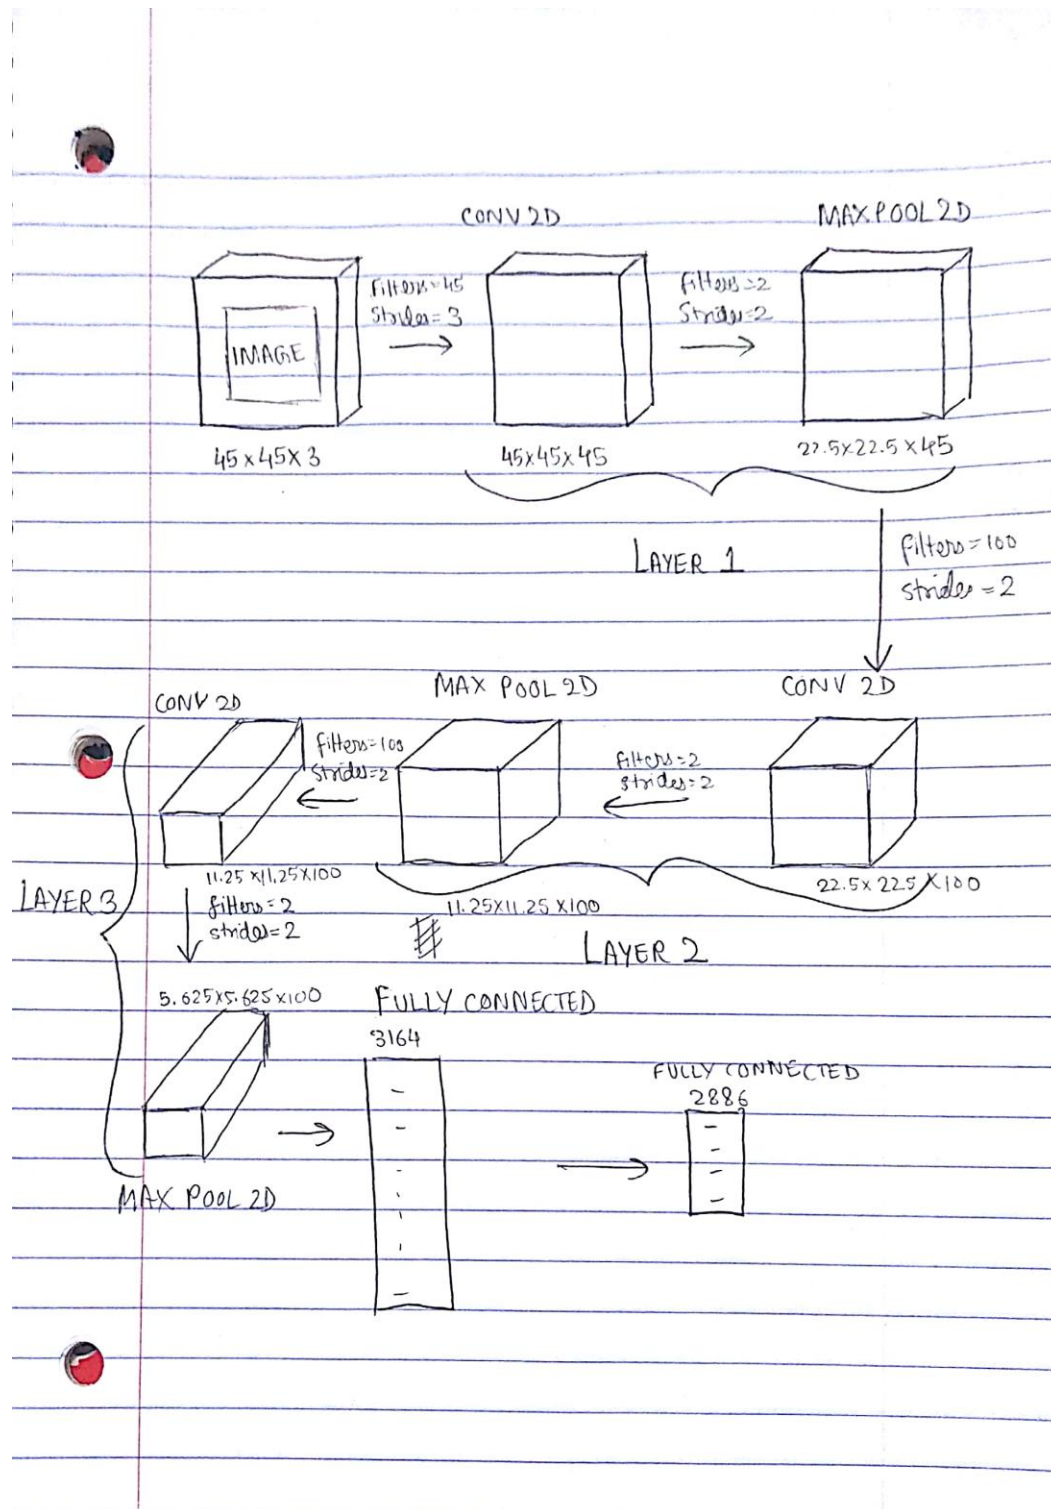 CONV 2D
MAX POOL 2D
Filters=45
Strides=3
filters=2
Strides=2
IMAGE
45x45x3
45x45x45
22.5x22.5x45
LAYER 1
filters=100
strides=2
CONV 2D
MAX POOL 2D
CONV 2D
filters=100
strides=2
filters=2
strides=2
11.25x11.25x100
11.25x11.25x100
22.5x22.5x100
LAYER 3
filters=2
strides=2
LAYER 2
5.625x5.625x100
FULLY CONNECTED
3164
FULLY CONNECTED
2886
MAX POOL 2D